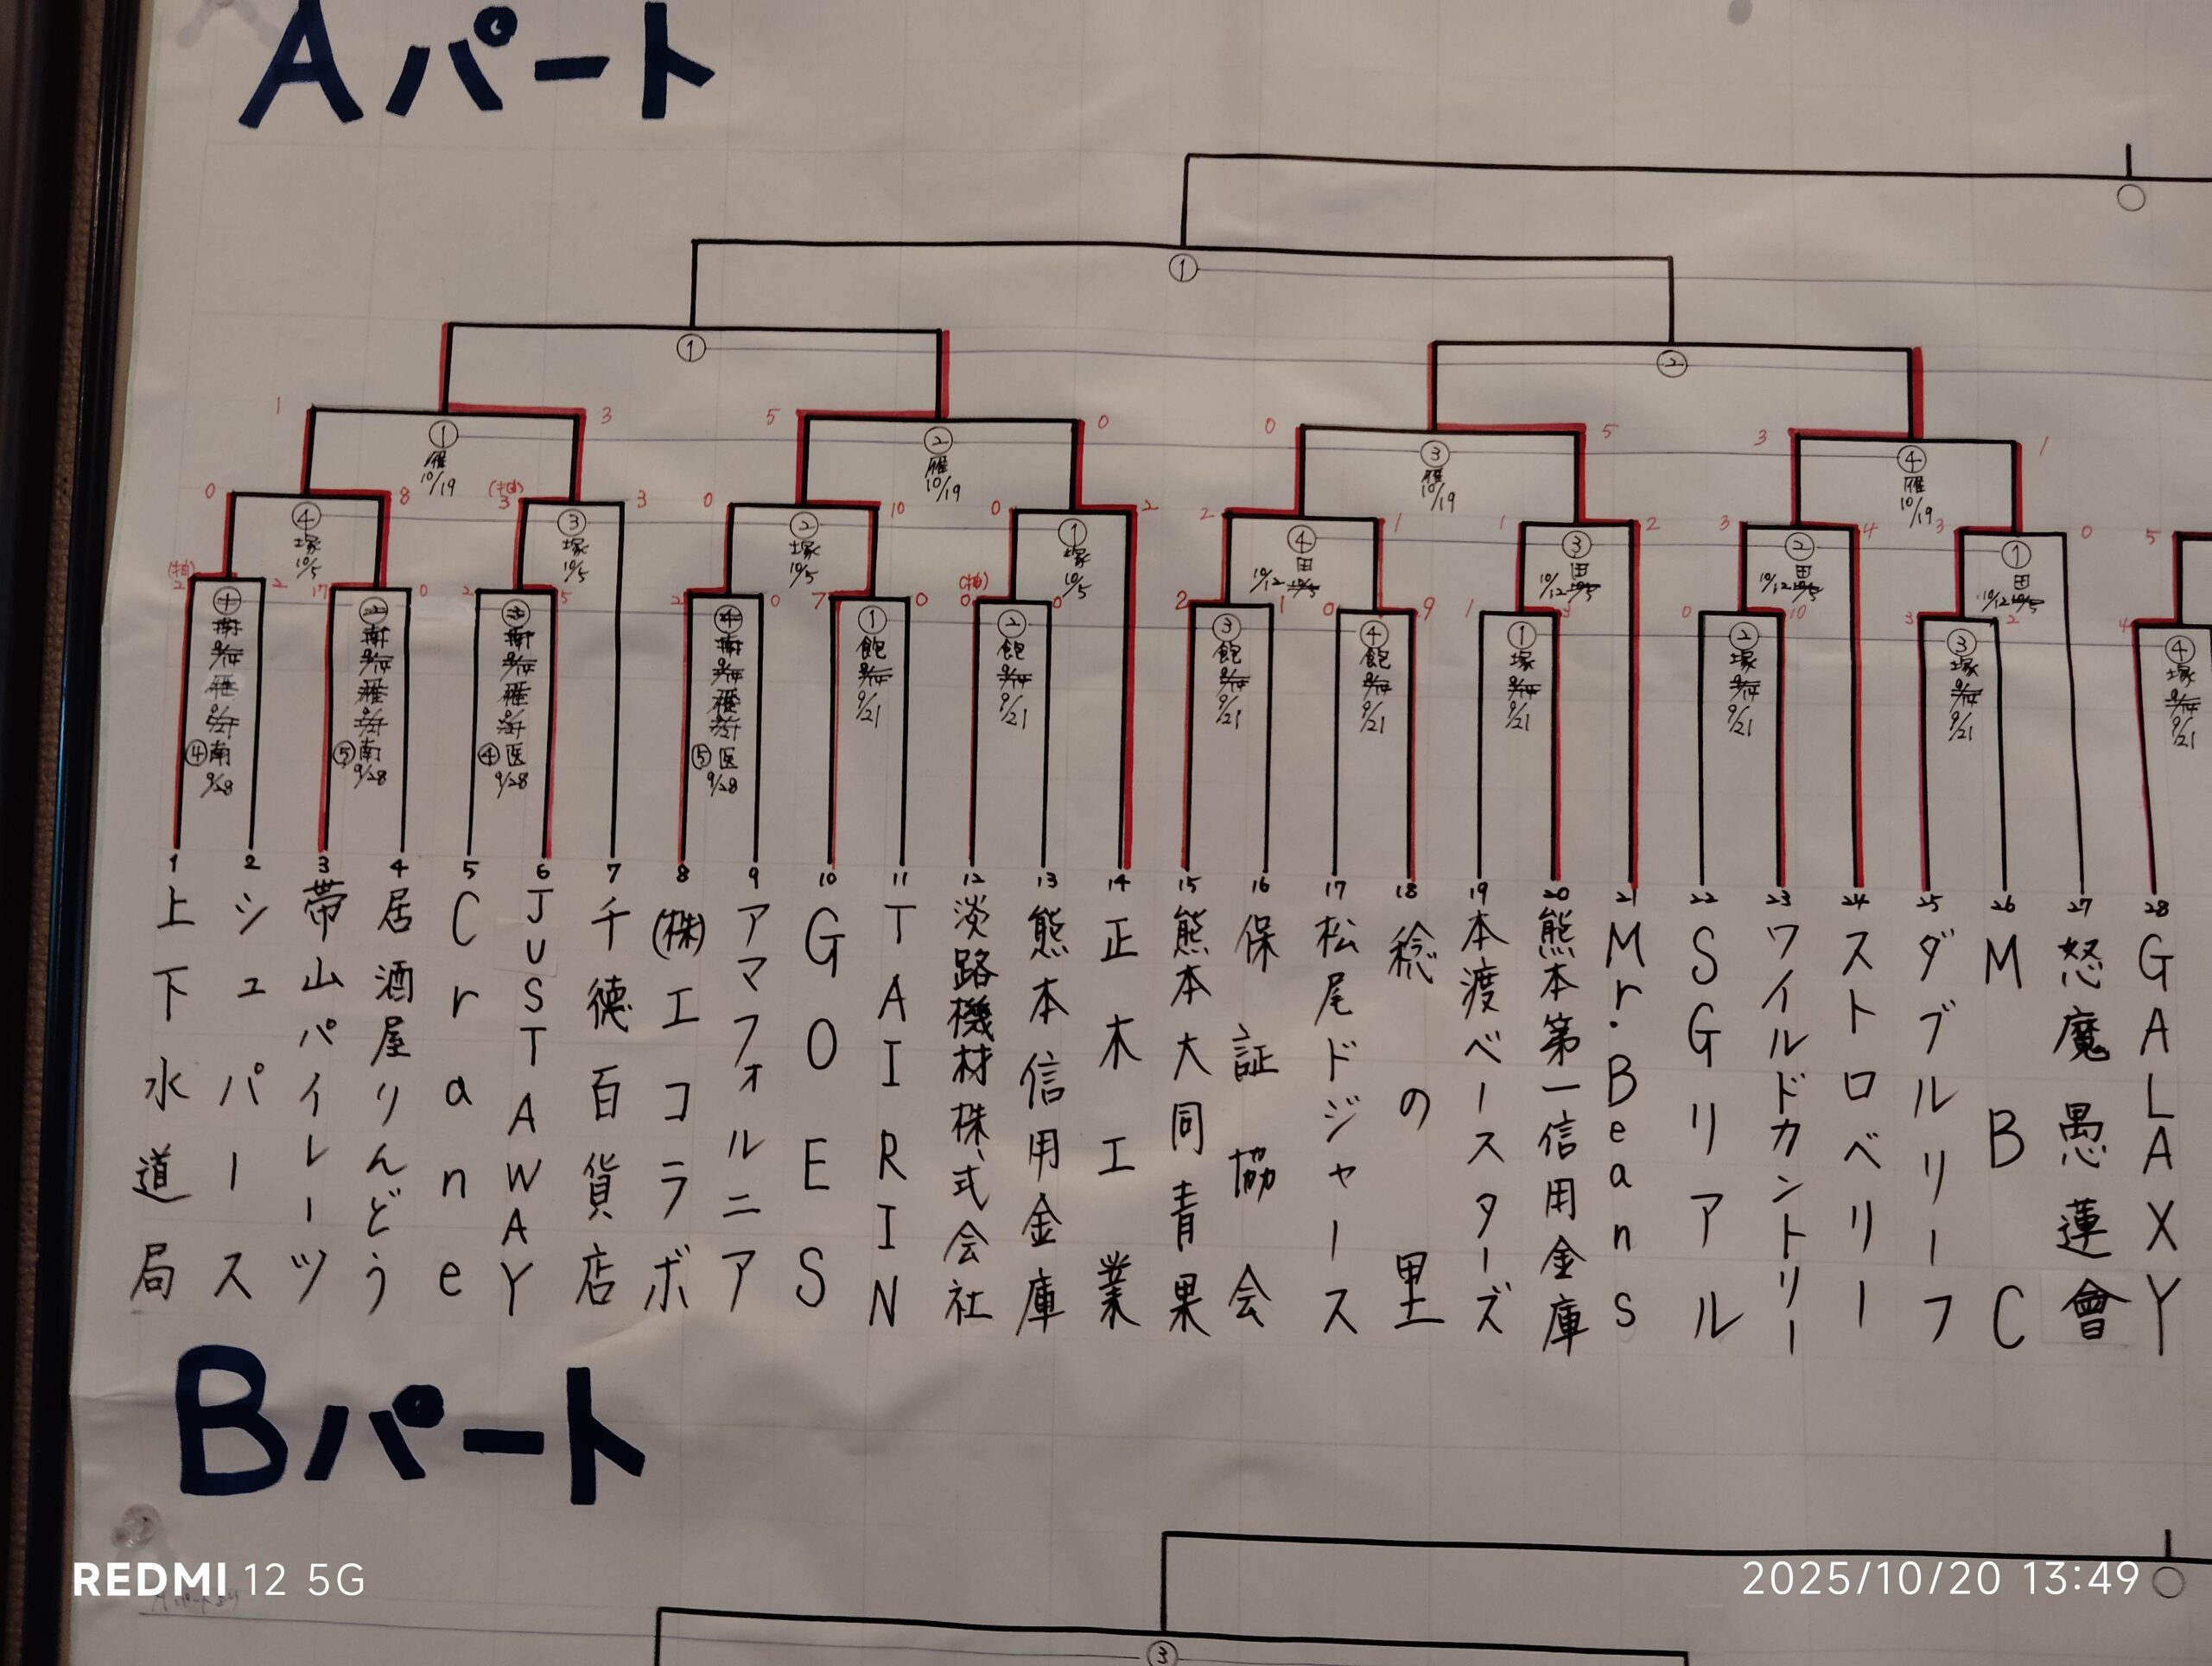 Aパート
①
①
②
1
3
5
0
0
5
3
1
①
雁
10/19
②
雁
10/19
③
雁
10/19
④
雁
10/19
0
8
(抽)
3
3
0
10
0
2
2
1
1
2
3
4
3
0
5
④
塚
10/5
③
塚
10/5
②
塚
10/5
①
塚
10/5
④
田
10/12
③
田
10/12
②
田
10/12
①
田
10/12
(抽)
2
2
17
0
2
5
2
0
7
0
(抽)
0
0
2
1
0
9
1
0
10
3
2
4
④南
9/28
⑤南
9/28
④医
9/28
⑤医
9/28
①
飽
9/14
9/21
②
飽
9/14
9/21
③
飽
9/14
9/21
④
飽
9/14
9/21
①
塚
9/14
9/21
②
塚
9/14
9/21
③
塚
9/14
9/21
④
塚
9/14
9/21
1 上下水道局
2 シュパース
3 帯山パイレーツ
4 居酒屋りんどう
5 Crane
6 JUSTAWAY
7 千徳百貨店
8 (株)エコラボ
9 アマフォルニア
10 GOES
11 TAIRIN
12 淡路機材株式会社
13 熊本信用金庫
14 正木工業
15 熊本大同青果
16 保証協会
17 松尾ドジャース
18 稔の里
19 本渡ベースターズ
20 熊本第一信用金庫
21 Mr.Beans
22 SGリアル
23 ワイルドカントリー
24 ストロベリー
25 ダブルリーフ
26 MBC
27 怒魔愚蓮會
28 GALAXY
Bパート
③
REDMI 12 5G
2025/10/20 13:49